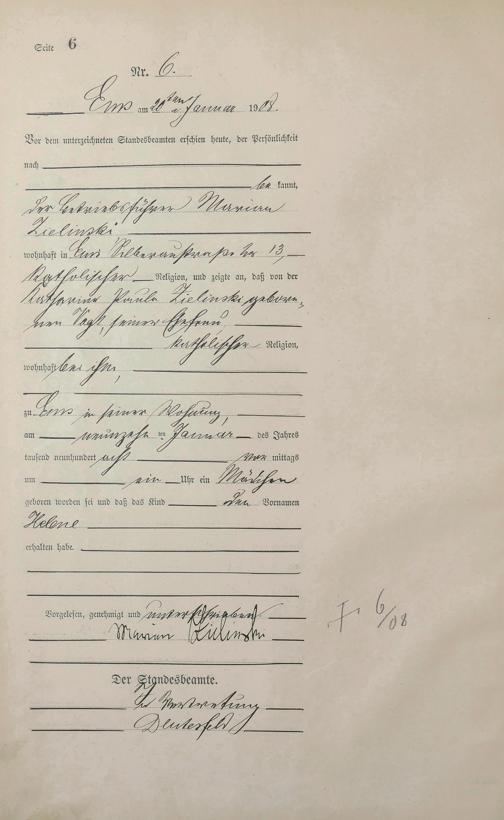 Seite 6
Nr. 6.
Ems am 20ten Januar 1908.
Vor dem unterzeichneten Standesbeamten erschien heute, der Persönlichkeit
nach
be kannt,
der Betriebsführer Marian
Zielinski
wohnhaft in Ems Silberaustraße Nr 13,
katholischer Religion, und zeigte an, daß von der
Katharina Paula Zielinski gebore-
nen Vogt, seiner Ehefrau,
katholischer Religion,
wohnhaft bei ihm,
zu Ems in seiner Wohnung,
am neunzehn ten Januar des Jahres
tausend neunhundert acht vor mittags
um ein Uhr ein Mädchen
geboren worden sei und daß das Kind den Vornamen
Helene
erhalten habe.
Vorgelesen, genehmigt und unterschrieben
Marian Zielinski
Der Standesbeamte.
In Vertretung
6/08